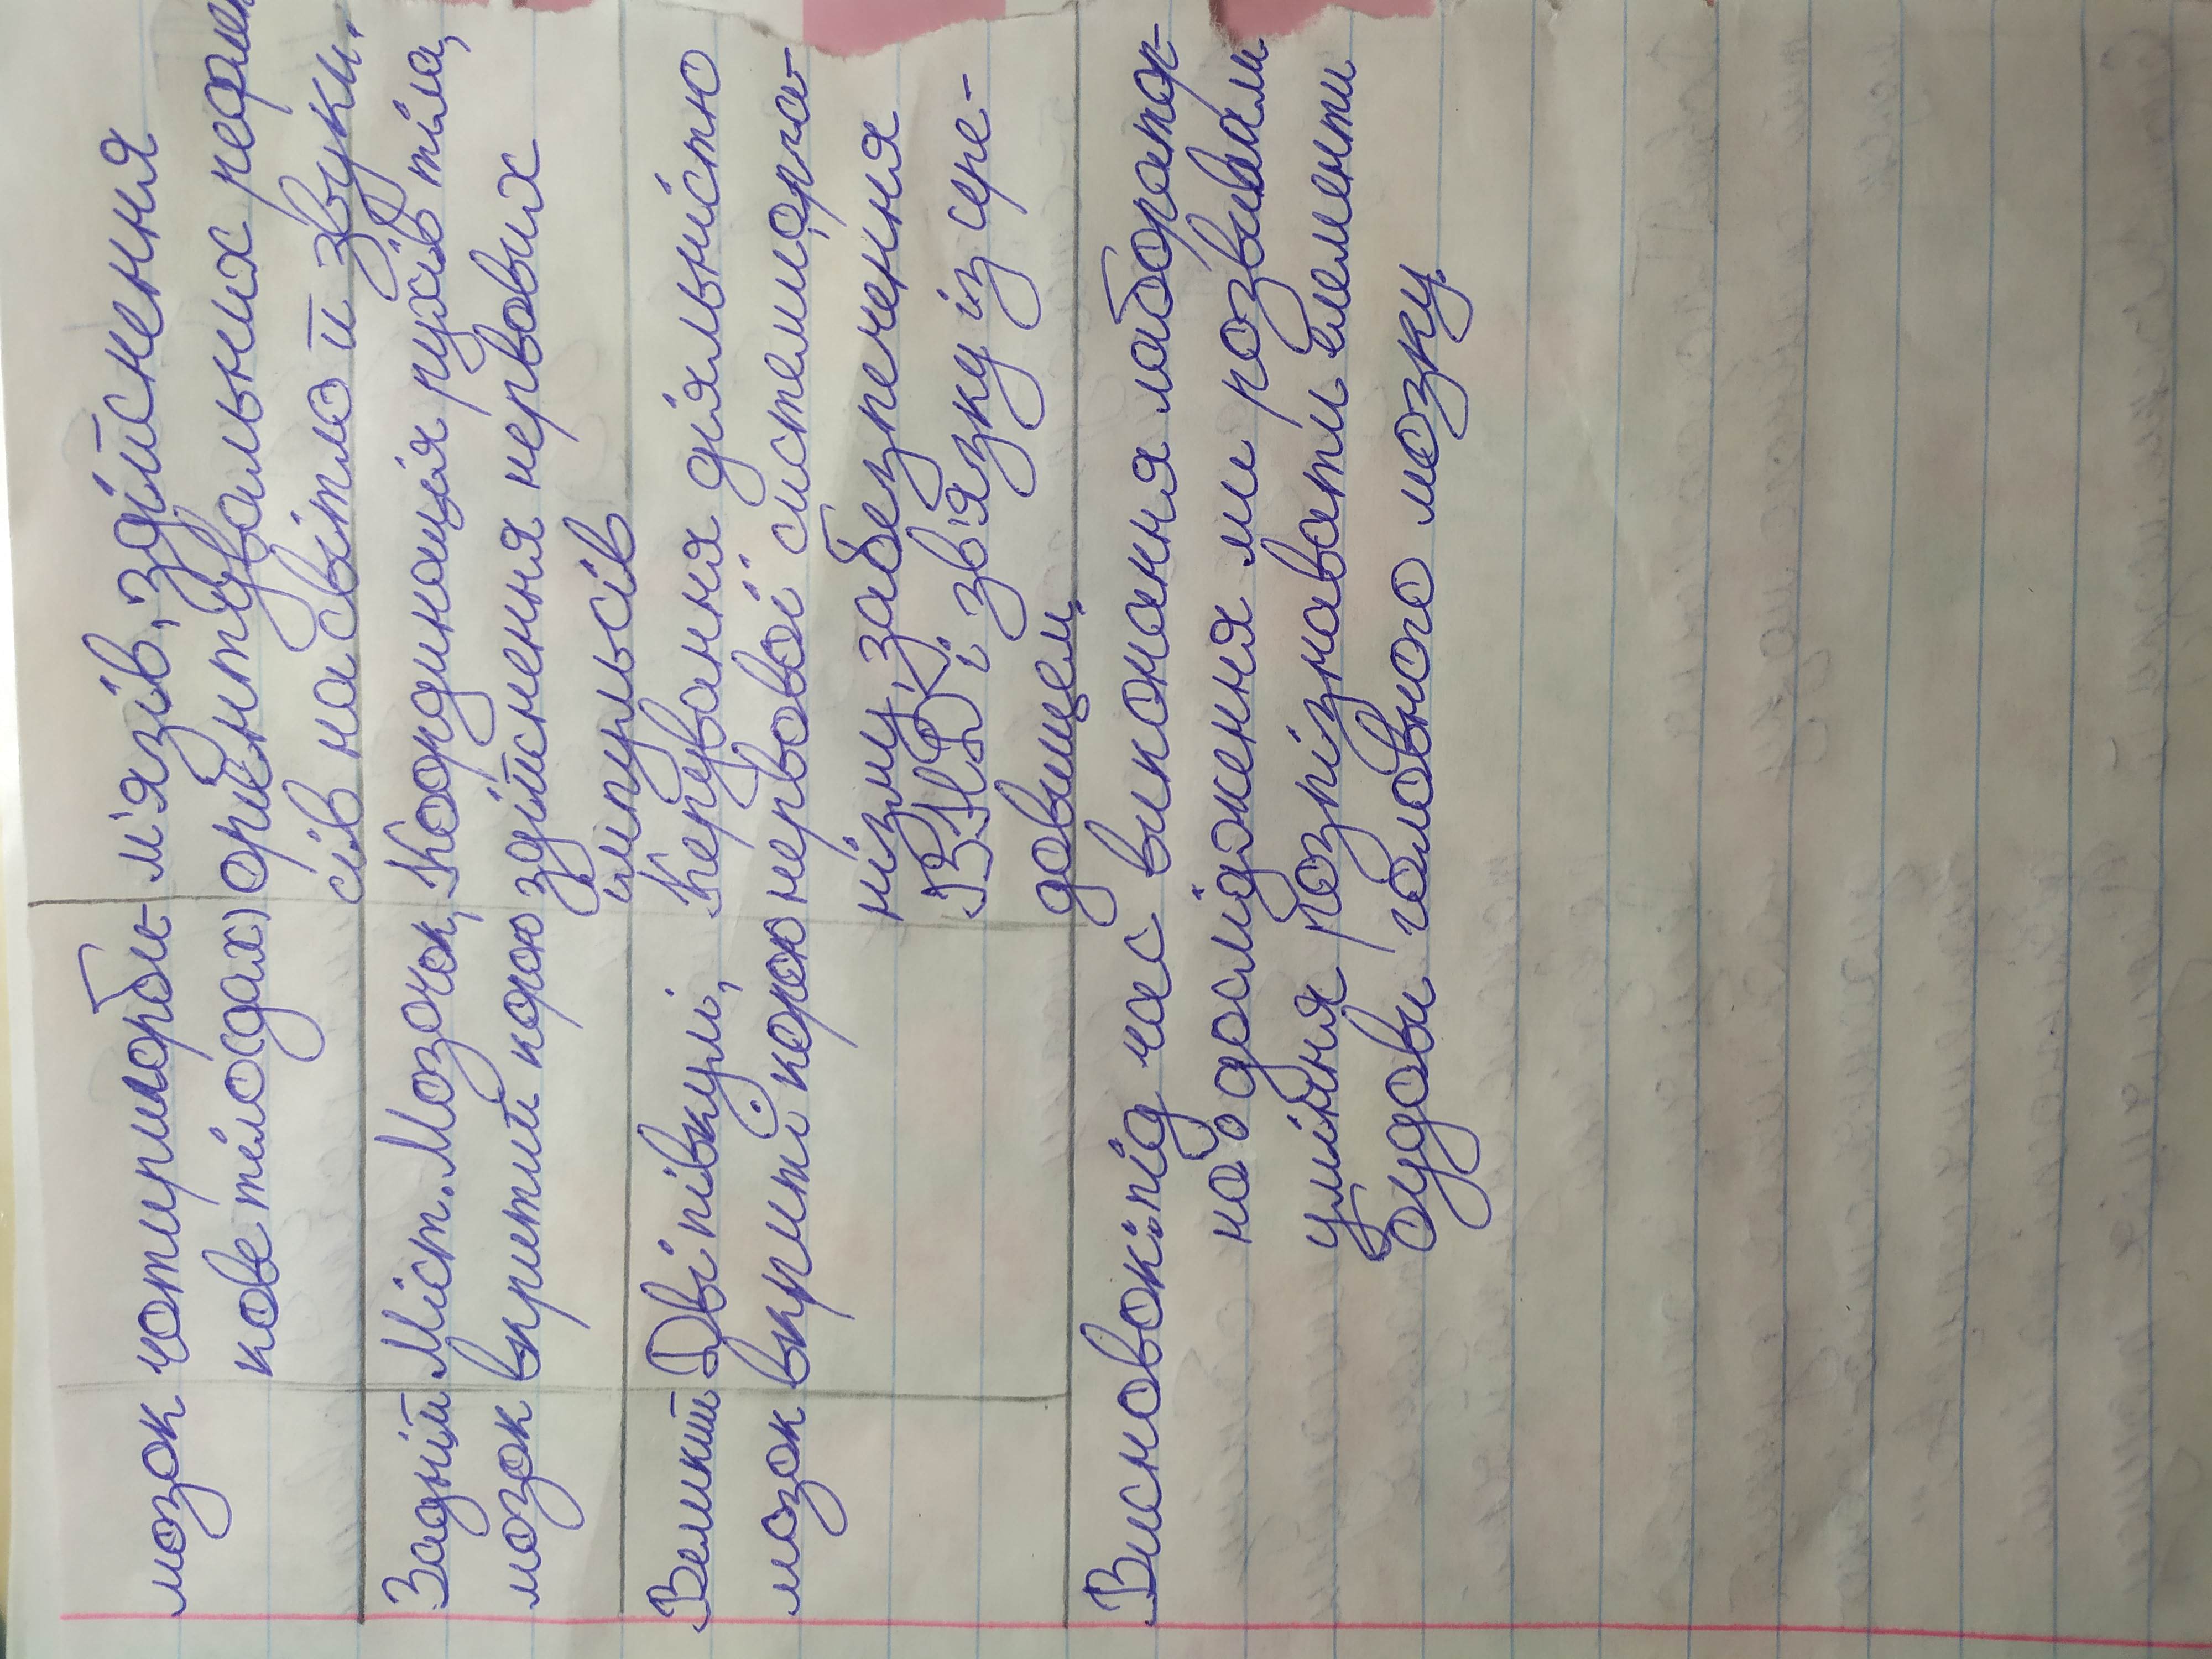 мозок чотиригорби- м'язів, здійснення
кове тіло(дах) орієнтувальних
сів на світло й звуки.
Задній Міст. Мозочок, Координація рухів тіла,
мозок вкритий корою здійснення нервових
імпульсів
Великий Дві півкулі, Керування діяльністю
мозок вкриті корою нервової системи, орга-
нізму, забезпечення
ВНД і зв'язку із сере-
довищем
Висновок: під час виконання лаборатор-
но дослідження ми розвивали
уміння розпізнавати елементи
будови головного мозку